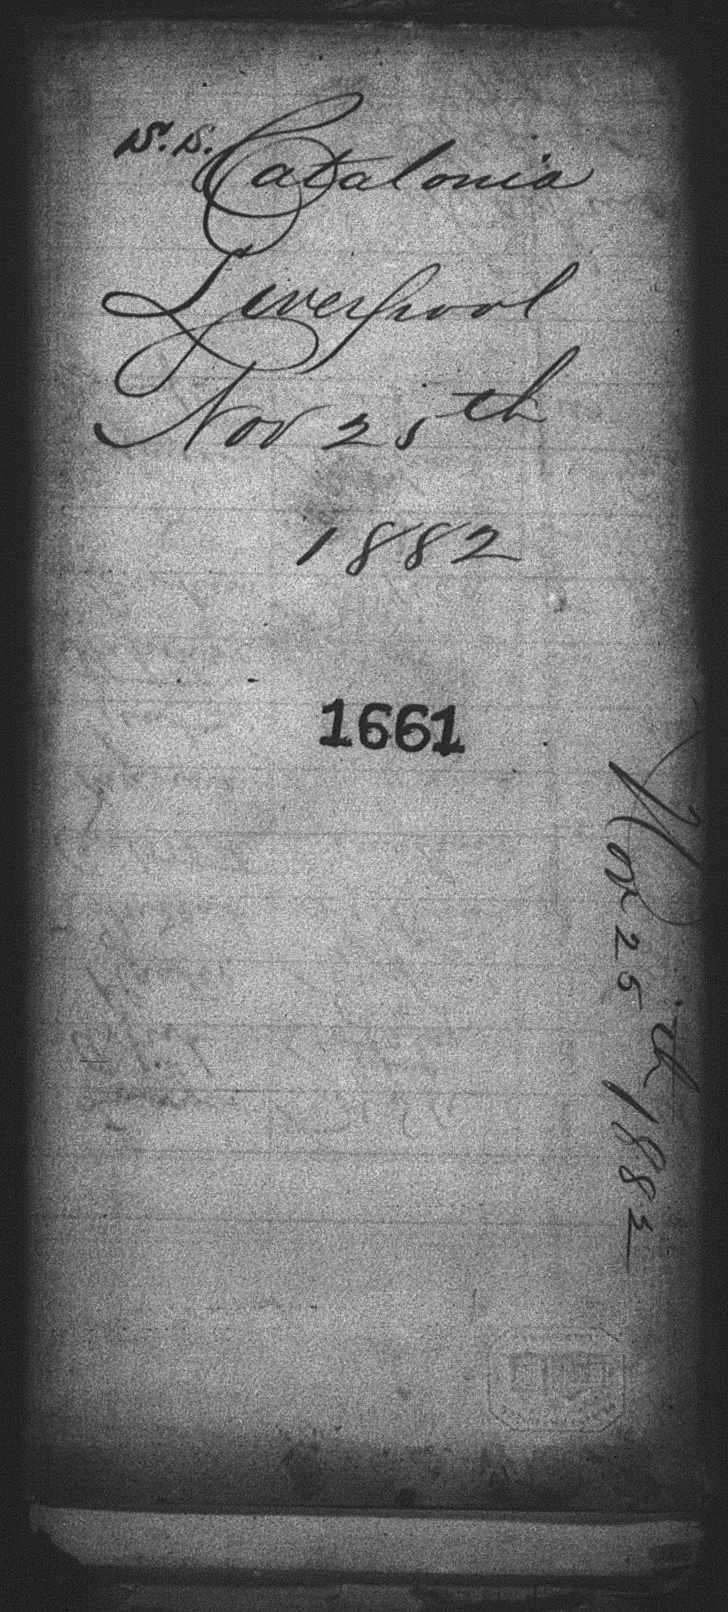 S.S. Catalonia
Liverpool
Nov 25th
1882
1661
Nov 25th 1882